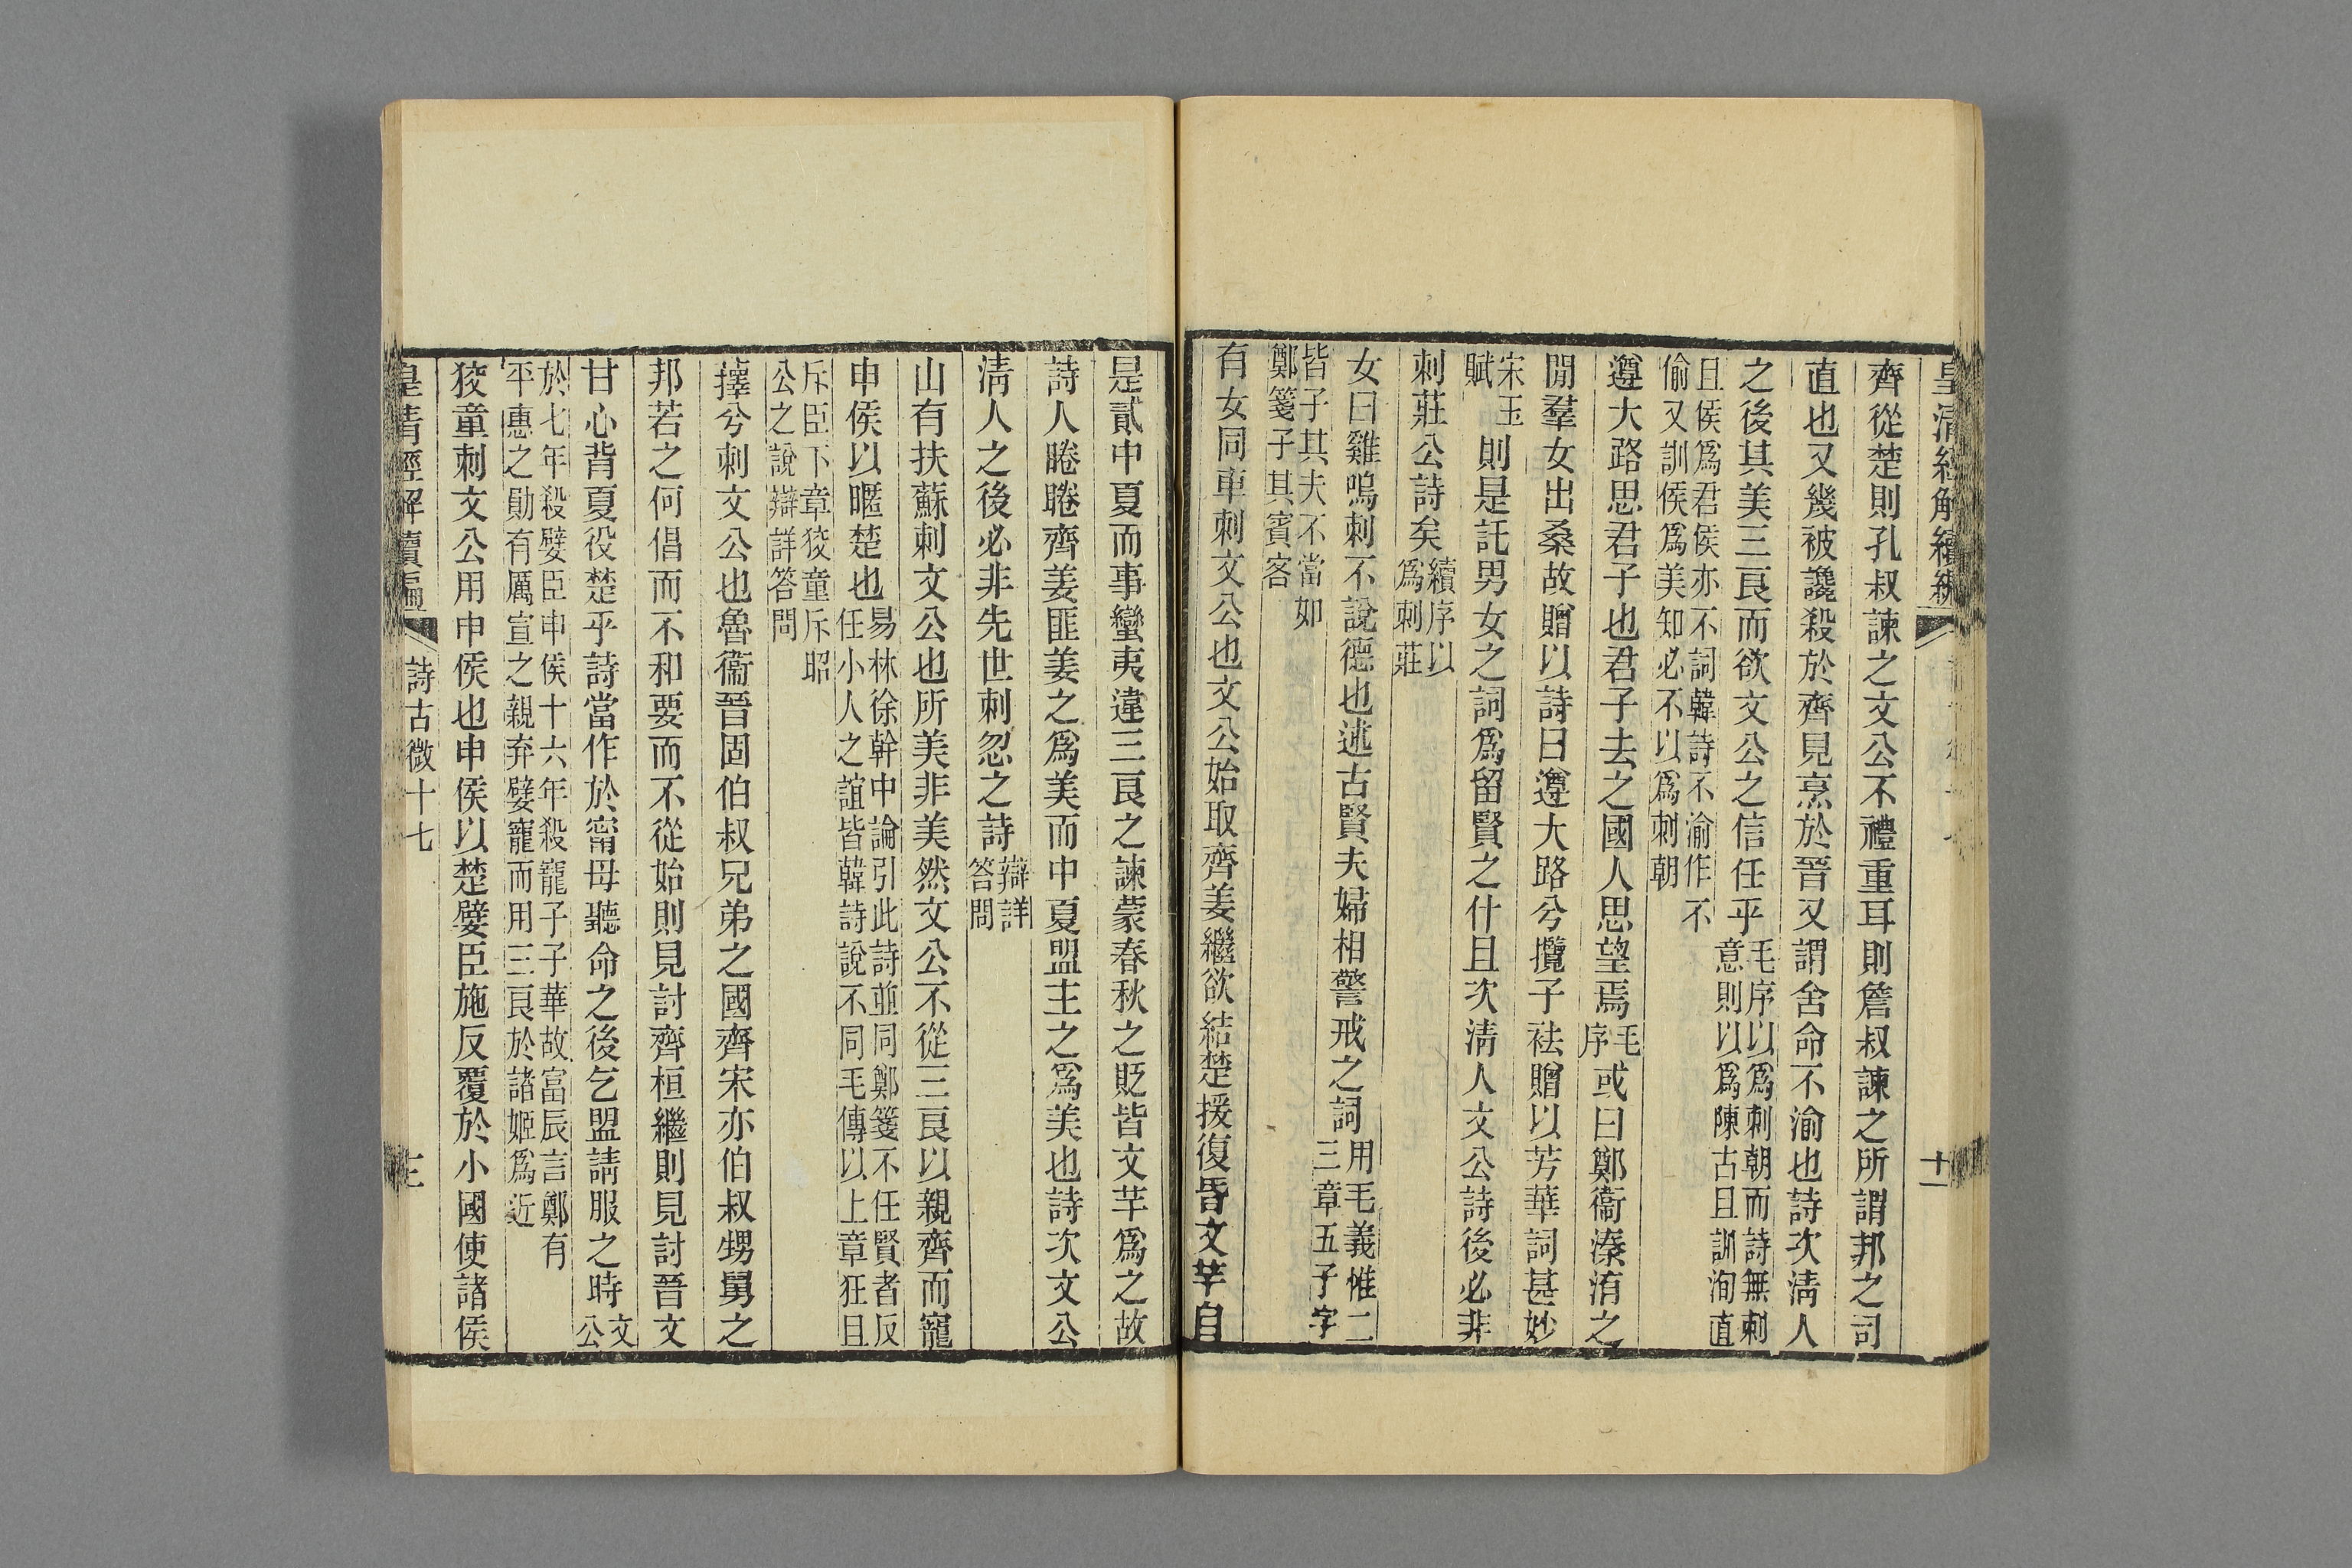 皇清經解續編
十一
齊從楚則孔叔諫之文公不禮重耳則詹叔諫之所謂邦之司
直也又幾被讒殺於齊見烹於晉又謂舍命不渝也詩次清人
之後其美三良而欲文公之信任乎毛序以爲刺朝而詩無刺
意則以爲陳古且訓洵直
且侯爲君侯亦不詞韓詩不渝作不
偷又訓侯爲美知必不以爲刺朝
遵大路思君子也君子去之國人思望焉毛序或曰鄭衞溱洧之
閒羣女出桑故贈以詩曰遵大路兮攬子祛贈以芳華詞甚妙
宋玉賦則是託男女之詞爲留賢之什且次清人文公詩後必非
刺莊公詩矣續序以爲刺莊
女曰雞鳴刺不說德也述古賢夫婦相警戒之詞用毛義惟二
三章五子字
皆子其夫不當如
鄭箋子其賓客
有女同車刺文公也文公始取齊姜繼欲結楚援復昏文芊自
是貳中夏而事蠻夷違三良之諫蒙春秋之貶皆文芊爲之故
詩人睠睠齊姜匪姜之爲美而中夏盟主之爲美也詩次文公
清人之後必非先世刺忽之詩辯詳答問
山有扶蘇刺文公也所美非美然文公不從三良以親齊而寵
申侯以暱楚也易林徐幹中論引此詩並同鄭箋不任賢者反
任小人之誼皆韓詩說不同毛傳以上章狂且
斥臣下章狡童斥昭
公之說辯詳答問
蘀兮刺文公也魯衞晉固伯叔兄弟之國齊宋亦伯叔甥舅之
邦若之何倡而不和要而不從始則見討齊桓繼則見討晉文
甘心背夏役楚乎詩當作於甯母聽命之後乞盟請服之時文公
於七年殺嬖臣申侯十六年殺寵子子華故富辰言鄭有
平惠之勛有厲宣之親弃嬖寵而用三良於諸姬爲近
狡童刺文公用申侯也申侯以楚嬖臣施反覆於小國使諸侯
皇清經解續編
詩古微十七